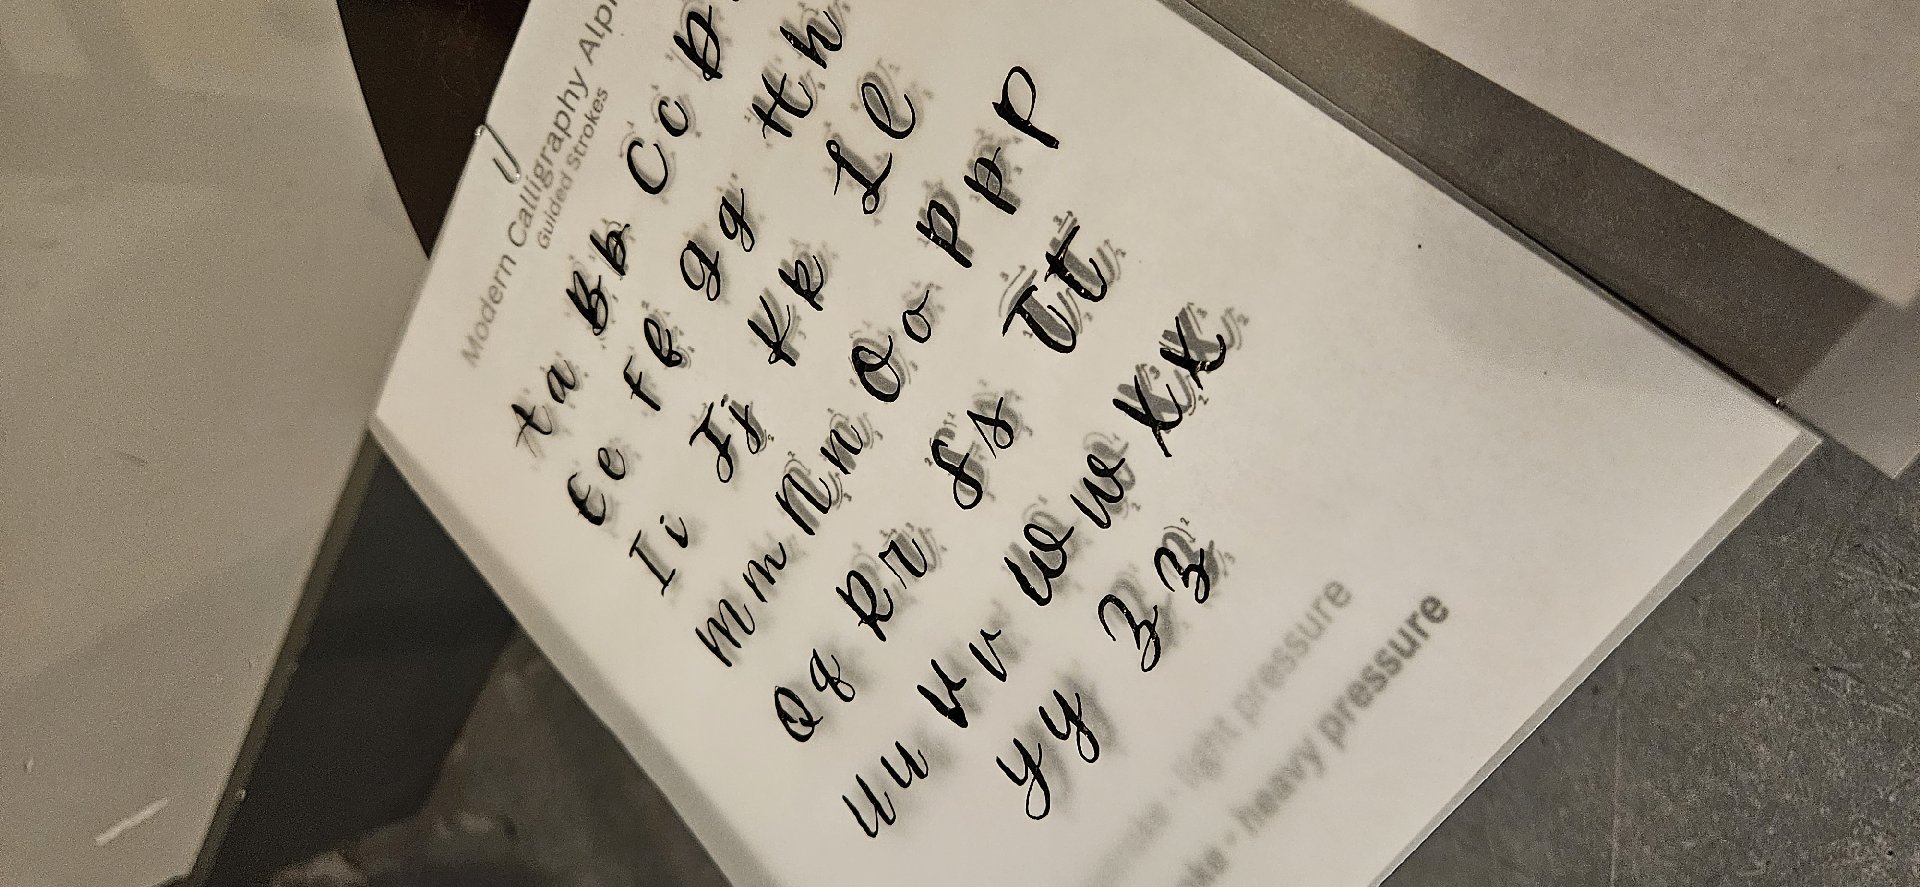 Modern Calligraphy Alp
Guided Strokes
A a B b C c D
E e F f G g H h
I i J j K k L l
M m N n O o P p P
Q q R r S s T t
U u V v W w X x
Y y Z z
light pressure
heavy pressure